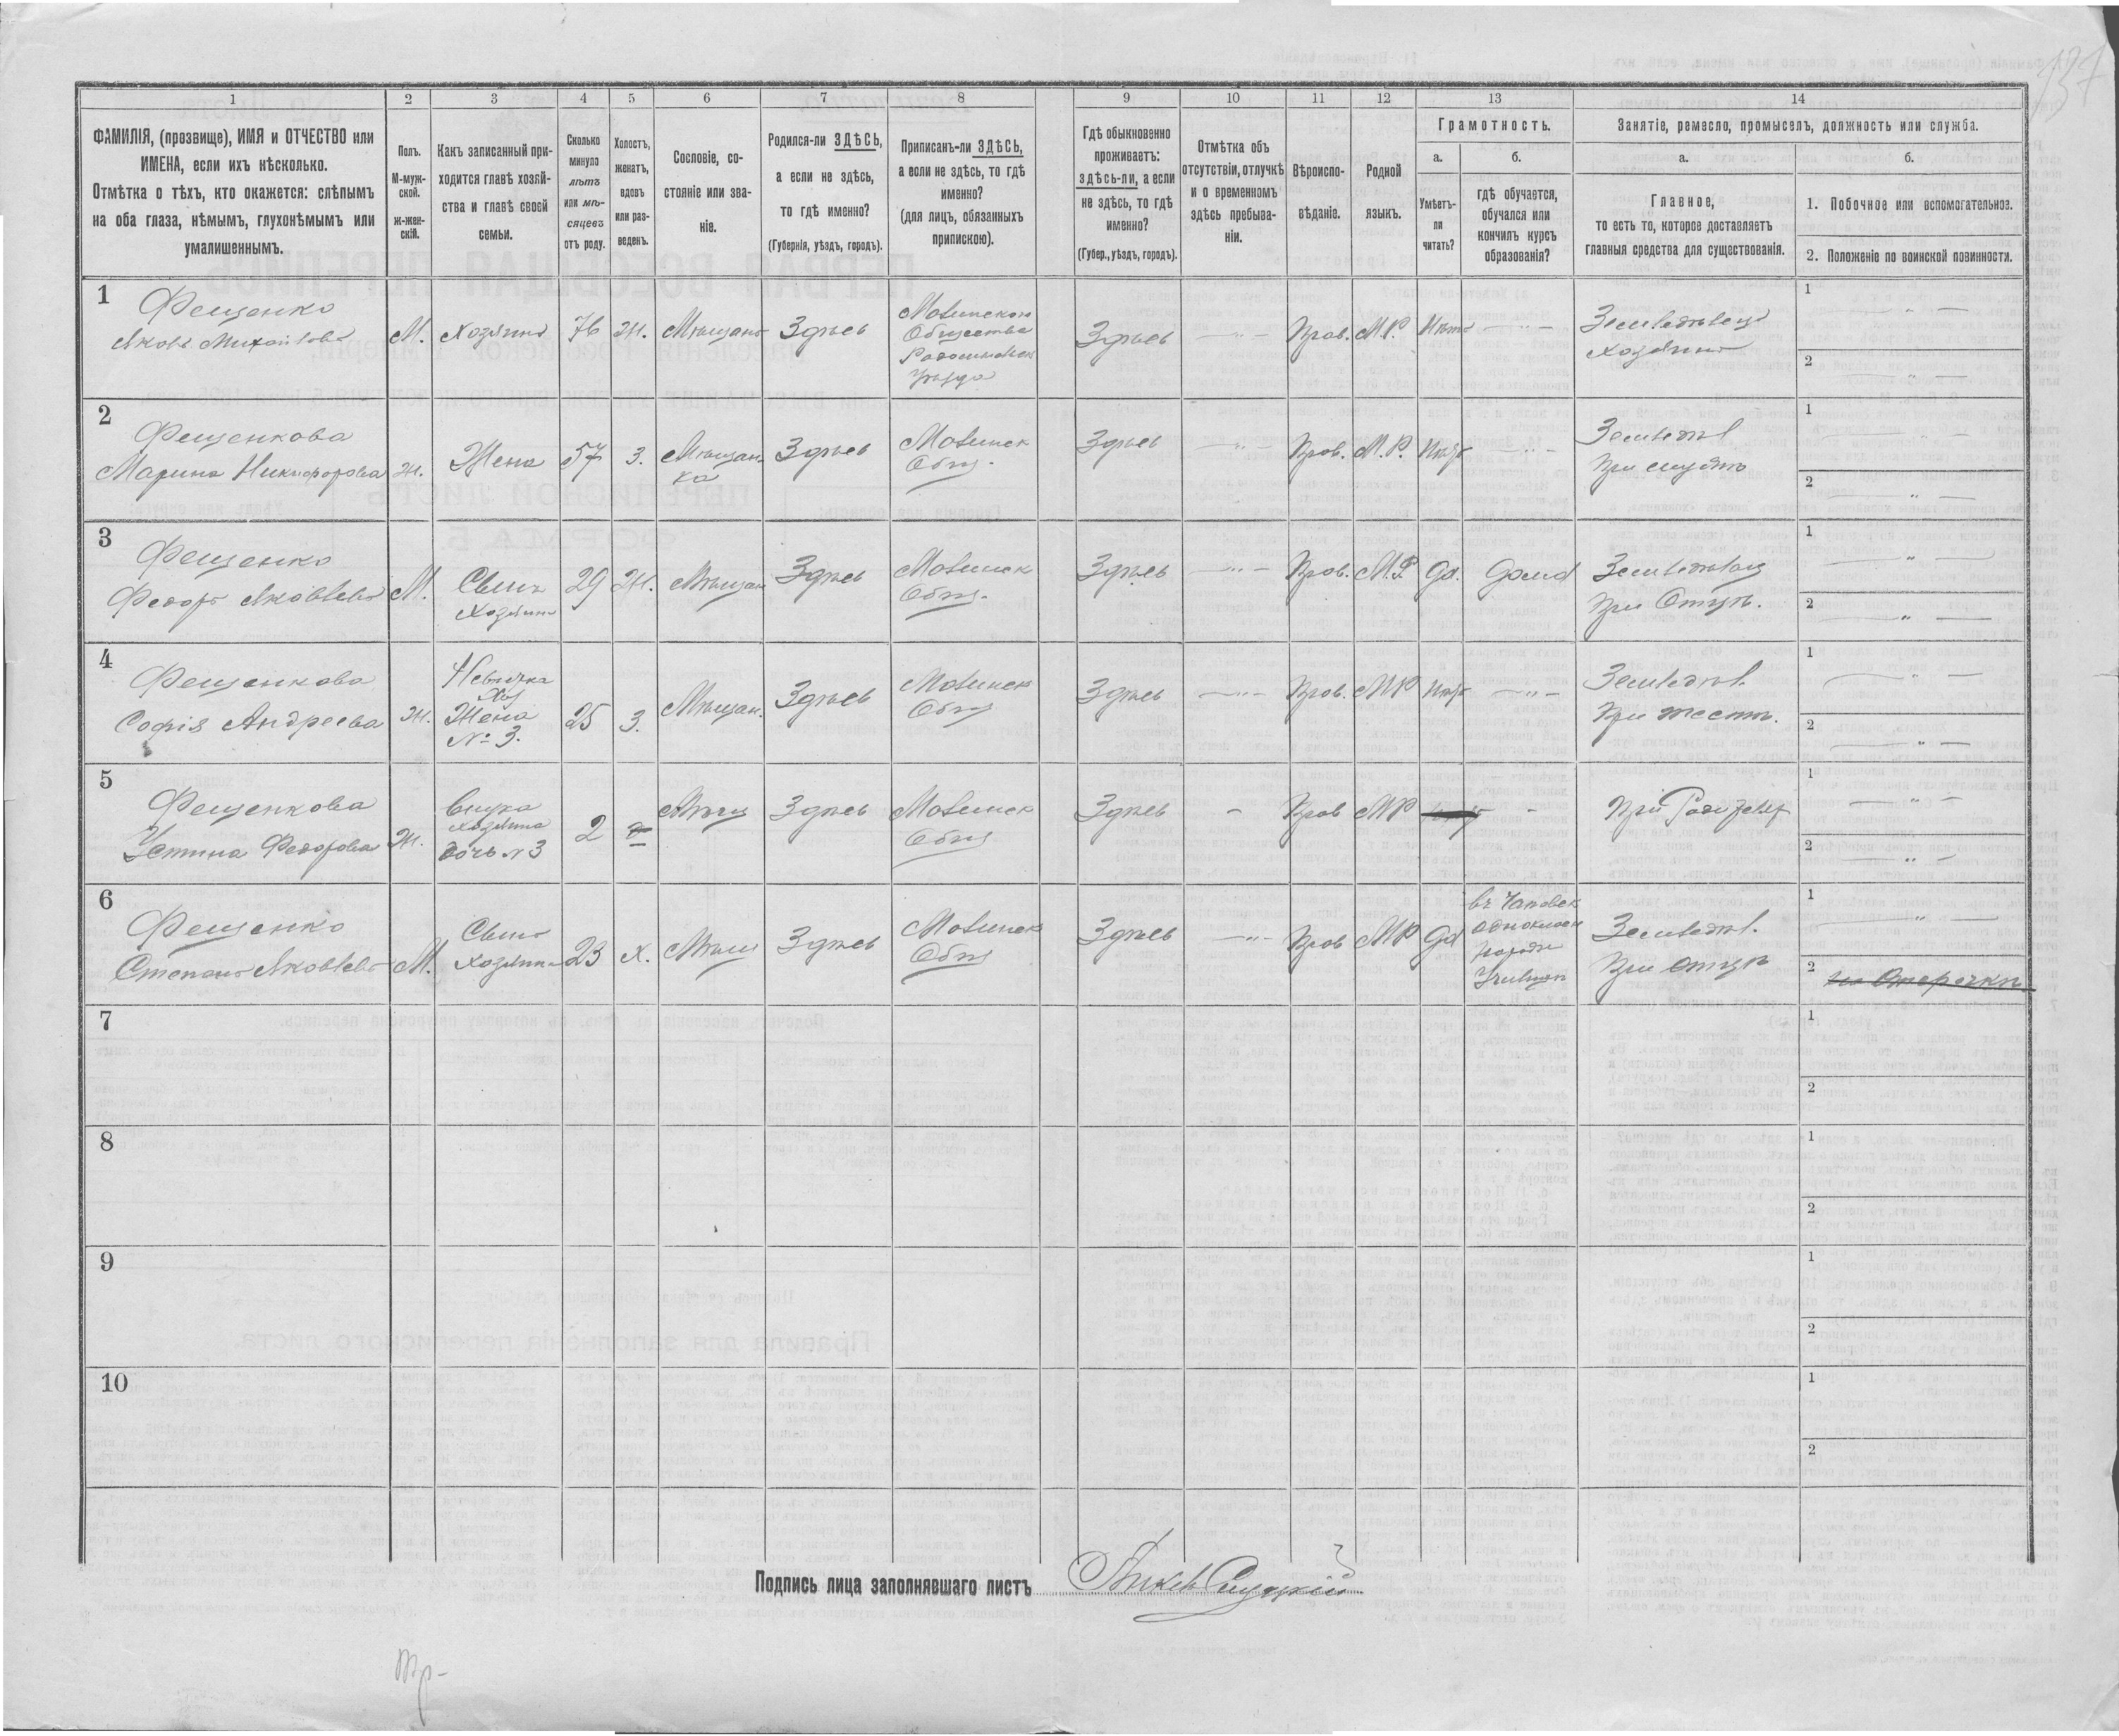 137
1 2 3 4 5 6 7 8 9 10 11 12 13 14
ФАМИЛІЯ, (прозвище), ИМЯ и ОТЧЕСТВО или
ИМЕНА, если ихъ нѣсколько.
Отмѣтка о тѣхъ, кто окажется: слѣпымъ
на оба глаза, нѣмымъ, глухонѣмымъ или
умалишеннымъ.
Полъ.
М-муж-
ской.
ж-жен-
скій.
Какъ записанный при-
ходится главѣ хозяй-
ства и главѣ своей
семьи.
Сколько
минуло
лѣтъ
или мѣ-
сяцевъ
отъ роду.
Холостъ,
женатъ,
вдовъ
или раз-
веденъ.
Сословіе, со-
стояніе или зва-
ніе.
Родился-ли ЗДѢСЬ,
а если не здѣсь,
то гдѣ именно?
(Губернія, уѣздъ, городъ).
Приписанъ-ли ЗДѢСЬ,
а если не здѣсь, то гдѣ
именно?
(для лицъ, обязанныхъ
припискою).
Гдѣ обыкновенно
проживаетъ:
здѣсь-ли, а если
не здѣсь, то гдѣ
именно?
(Губер., уѣздъ, городъ).
Отмѣтка объ
отсутствіи, отлучкѣ
и о временномъ
здѣсь пребыва-
ніи.
Вѣроиспо-
вѣданіе.
Родной
языкъ.
Грамотность.
а.
Умѣетъ-
ли
читать?
б.
гдѣ обучается,
обучался или
кончилъ курсъ
образованія?
Занятіе, ремесло, промыселъ, должность или служба.
а.
Главное,
то есть то, которое доставляетъ
главныя средства для существованія.
б.
1. Побочное или вспомогательное.
2. Положеніе по воинской повинности.
1
Фещенко
Яковъ Михайловъ
М.
Хозяинъ
76
Ж.
Мѣщанъ
Здѣсь
Общества
Уѣзда
Здѣсь
Прав.
М.Р.
Нѣтъ
Земледѣлецъ
хозяинъ
1
2
2
Фещенкова
Марина Никифорова
Ж.
Жена
57
З.
Мѣщан-
ка
Здѣсь
Общ.
Здѣсь
Прав.
М.Р.
Нѣтъ
Земледѣл
При мужѣ
1
2
3
Фещенко
Федоръ Яковлевъ
М.
Сынъ
Хозяина
29
Ж.
Мѣщан
Здѣсь
Общ.
Здѣсь
Прав.
М.Р.
Да.
Дома
Земледѣлец
При Отцѣ.
1
2
4
Фещенкова
Софія Андреева
Ж.
Невѣстка
Хоз
Жена
№ 3.
25
З.
Мѣщан.
Здѣсь
Общ
Здѣсь
Прав.
МР
Нѣт
Земледѣл.
При тестѣ.
1
2
5
Фещенкова
Устина Федорова
Ж.
Внука
хозяина
дочь № 3
2
Мѣщ
Здѣсь
Общ
Здѣсь
Прав
МР
При
1
2
6
Фещенко
Степанъ Яковлевъ
М.
Сынъ
хозяина
23
Х.
Мѣщ
Здѣсь
Общ
Здѣсь
Прав
МР
Да
Земледѣл.
При отцѣ
1
2
7
1
2
8
1
2
9
1
2
10
1
2
Подпись лица заполнявшаго листъ